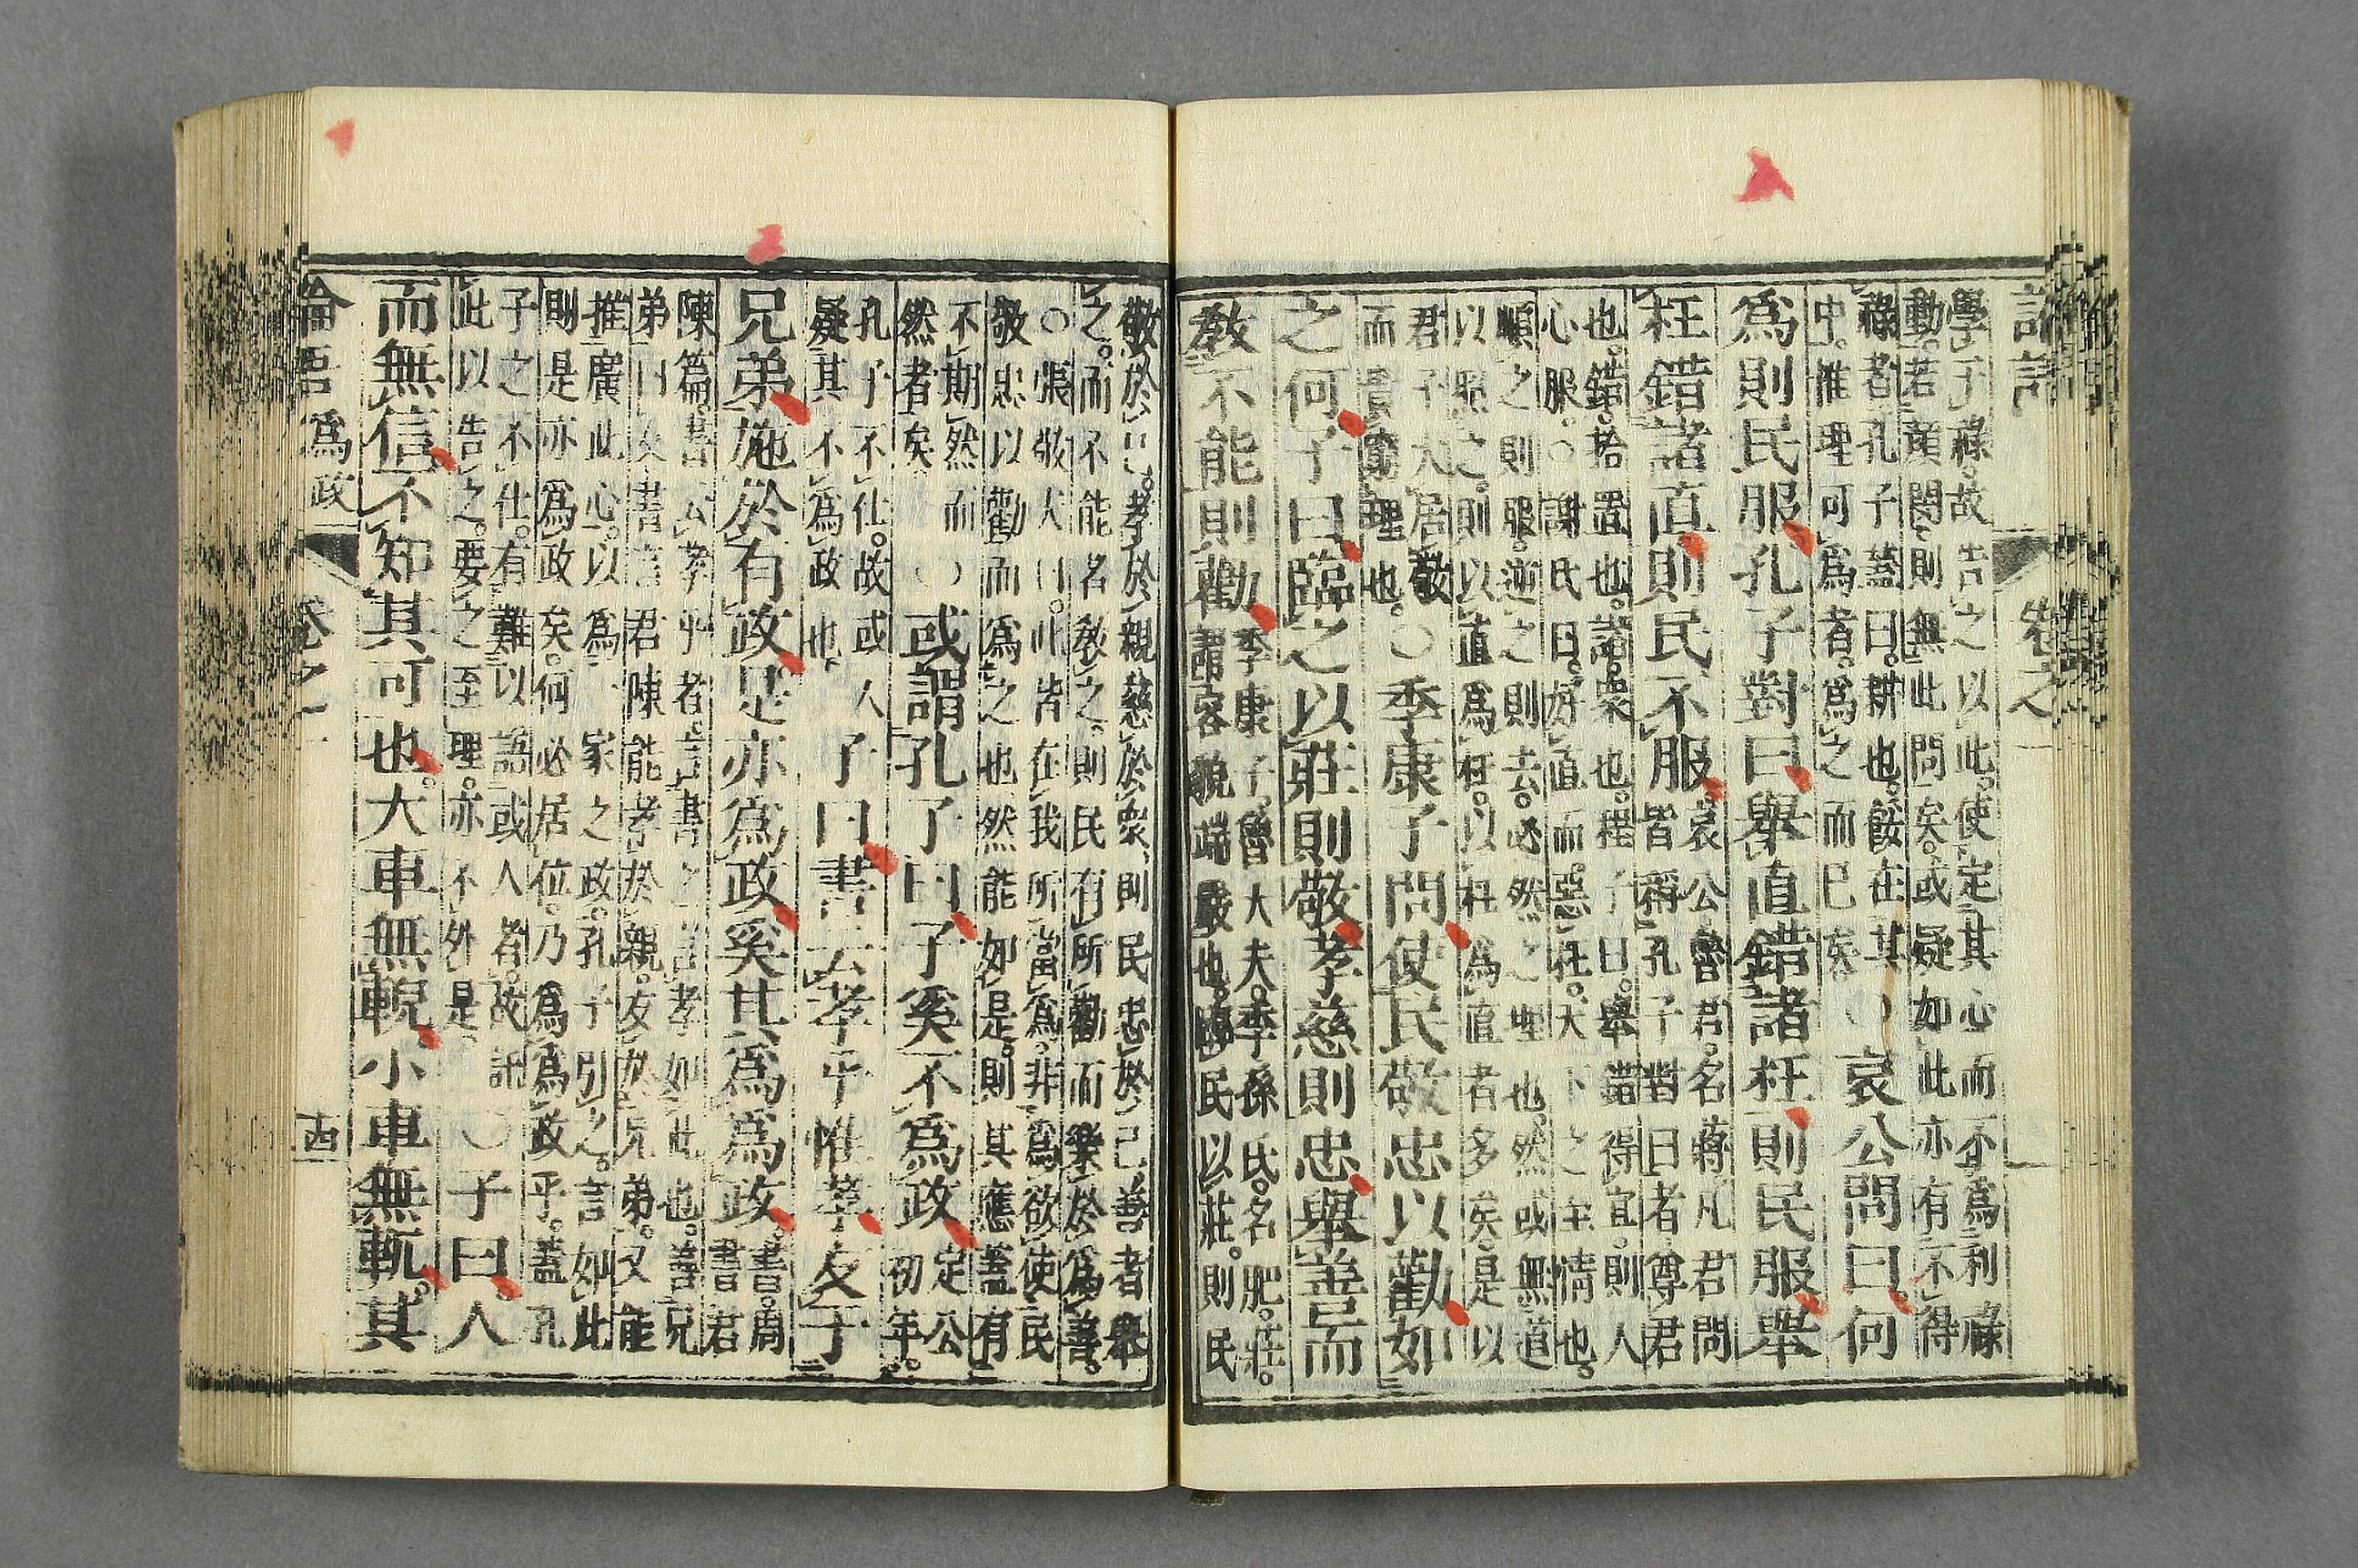 卷之一
學干祿。故告之以此。使定其心而不爲利祿
動。若顏閔則無此問矣。或疑如此亦有不得
祿者。孔子蓋曰。耕也。餒在其
中。惟理可爲者。爲之而已矣。
○哀公問曰。何
爲則民服孔子對曰舉直錯諸枉則民服舉
枉錯諸直則民不服
哀公魯君。名蔣凡君問
皆稱孔子對曰者尊君
也。錯。捨置也。諸。衆也。程子曰。舉錯得宜。則人
心服。○謝氏曰。好直而惡枉。天下之至情也。
順之則服。逆之則去。必然之理也。然或無道
以照之。則以直爲枉。以枉爲直者多矣。是以
君子大居敬
而貴窮理也。
○季康子問使民敬忠以勸如
之何子曰臨之以莊則敬孝慈則忠舉善而
教不能則勸
季康子。魯大夫。季孫氏。名肥。莊。
謂容貌端嚴也。臨民以莊。則民
敬於己。孝於親慈於衆。則民忠於己善者舉
之。而不能者教之。則民有所勸而樂於爲善。
○張敬夫曰。此皆在我所當爲。非爲欲使民
敬忠以勸而爲之也然能如是。則其應蓋有
不期然而
然者矣
○或謂孔子曰子奚不爲政
定公
初年。
孔子不仕。故或人
疑其不爲政也。
子曰書云孝乎惟孝友于
兄弟施於有政是亦爲政奚其爲爲政
書。周
書君
陳篇。書云孝乎者。言書之言孝如此也。善兄
弟曰友書言君陳能孝於親。友於兄弟。又能
推廣此心。以爲一家之政。孔子引之。言如此
則是亦爲政矣。何必居位。乃爲爲政乎。蓋孔
子之不仕。有難以語或人者。故託
此以告之。要之至理。亦不外是。
○子曰人
而無信不知其可也。大車無輗。小車無軏。其
論語爲政 卷之一 十四